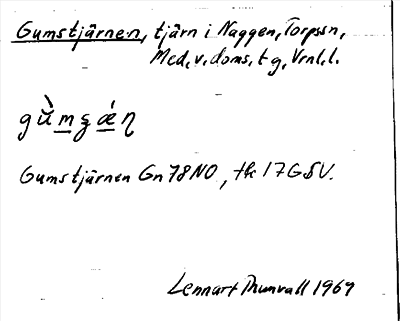 Gumstjärnen, tjärn i Naggen, Torpssn,
Med. v. doms. tg, Vrnl. l.
gùmʂǽɳ
Gumstjärnen Gn 78NO, tk 17G SV.
Lennart Thunvall 1969